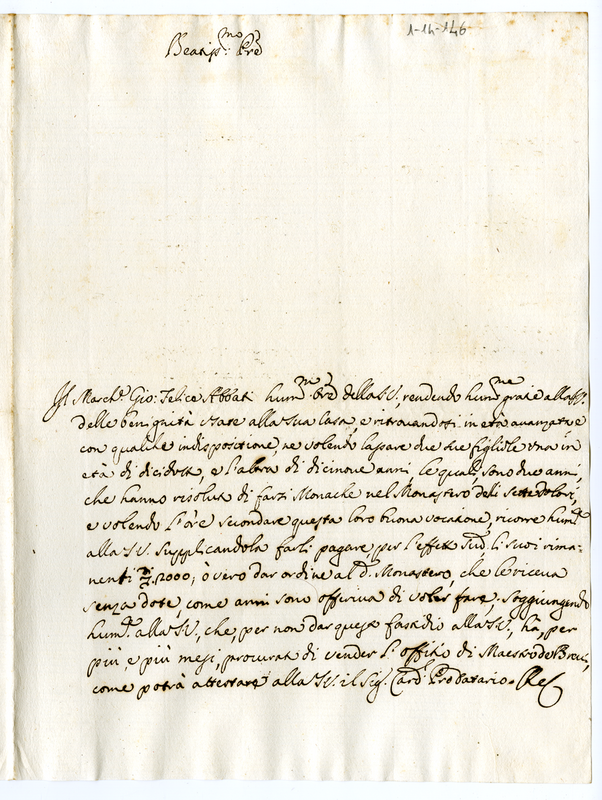 1-14-146
Beatiss:mo Pre
Il March.e Gio: Felice Abbati hum:mo Ore della SV, rendendo hum:me gratie alla SV.
delle benignità usate alla sua Casa, e ritrovandosi in età avanzata è
con qualche indispositione, ne volendo lassare due sue figliole una in
età di dicidott, e l'altra di dicinove anni, le quali, sono due anni,
che hanno risoluto di farsi Monache nel Monastero delli Sette dolori,
e volendo l'Ore secondare questa loro buona vocatione, ricorre hum.te
alla SV. Supplicandola farli pagare, per l'effett. sud. li suoi rima-
nenti 2000, ò vero dar ordine al d. Monastero, che le riceva
senza dote, come anni sono offeriva di voler fare, Soggiungendo
hum.te alla SV, che, per non dar questo fastidio alla SV, hà, per
più, e più mesi, procurato di vender l'offitio di Maestro de Brevi,
come potrà attestare alla SV. il Sig. Card. Prodatario. Che